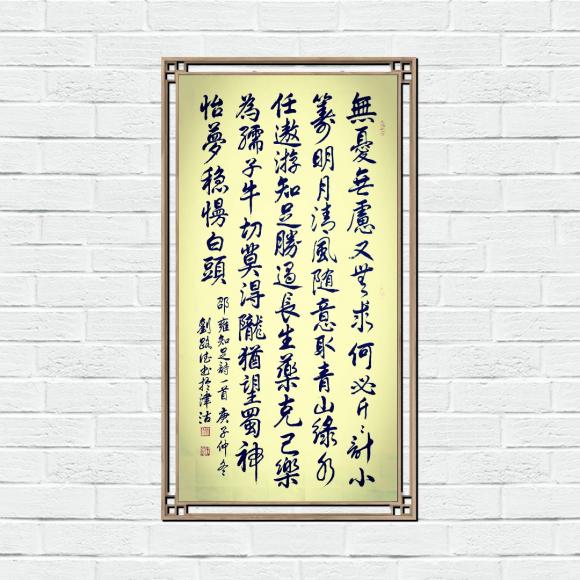 無憂無慮又無求何必斤〻計小
籌明月清風随意取青山綠水
任遨游知足勝過長生藥克己樂
為孺子牛切莫得隴猶望蜀神
怡夢穩慢白頭
邵雍知足詩一首 庚子仲冬
劉 書於津沽